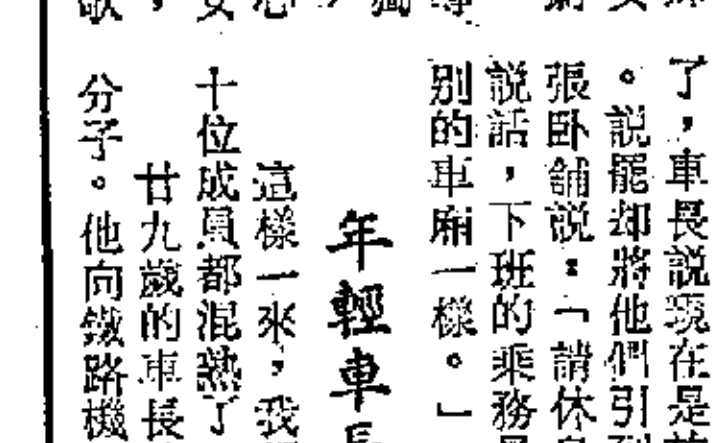 了，車長説現在是
。説罷却將他們引到
張卧舖説：「請休息
説話，下班的乘務員
別的車廂一樣。」
年輕車長
這樣一來，我
十位成員都混熟了
廿九歲的車長
分子。他向鐵路機